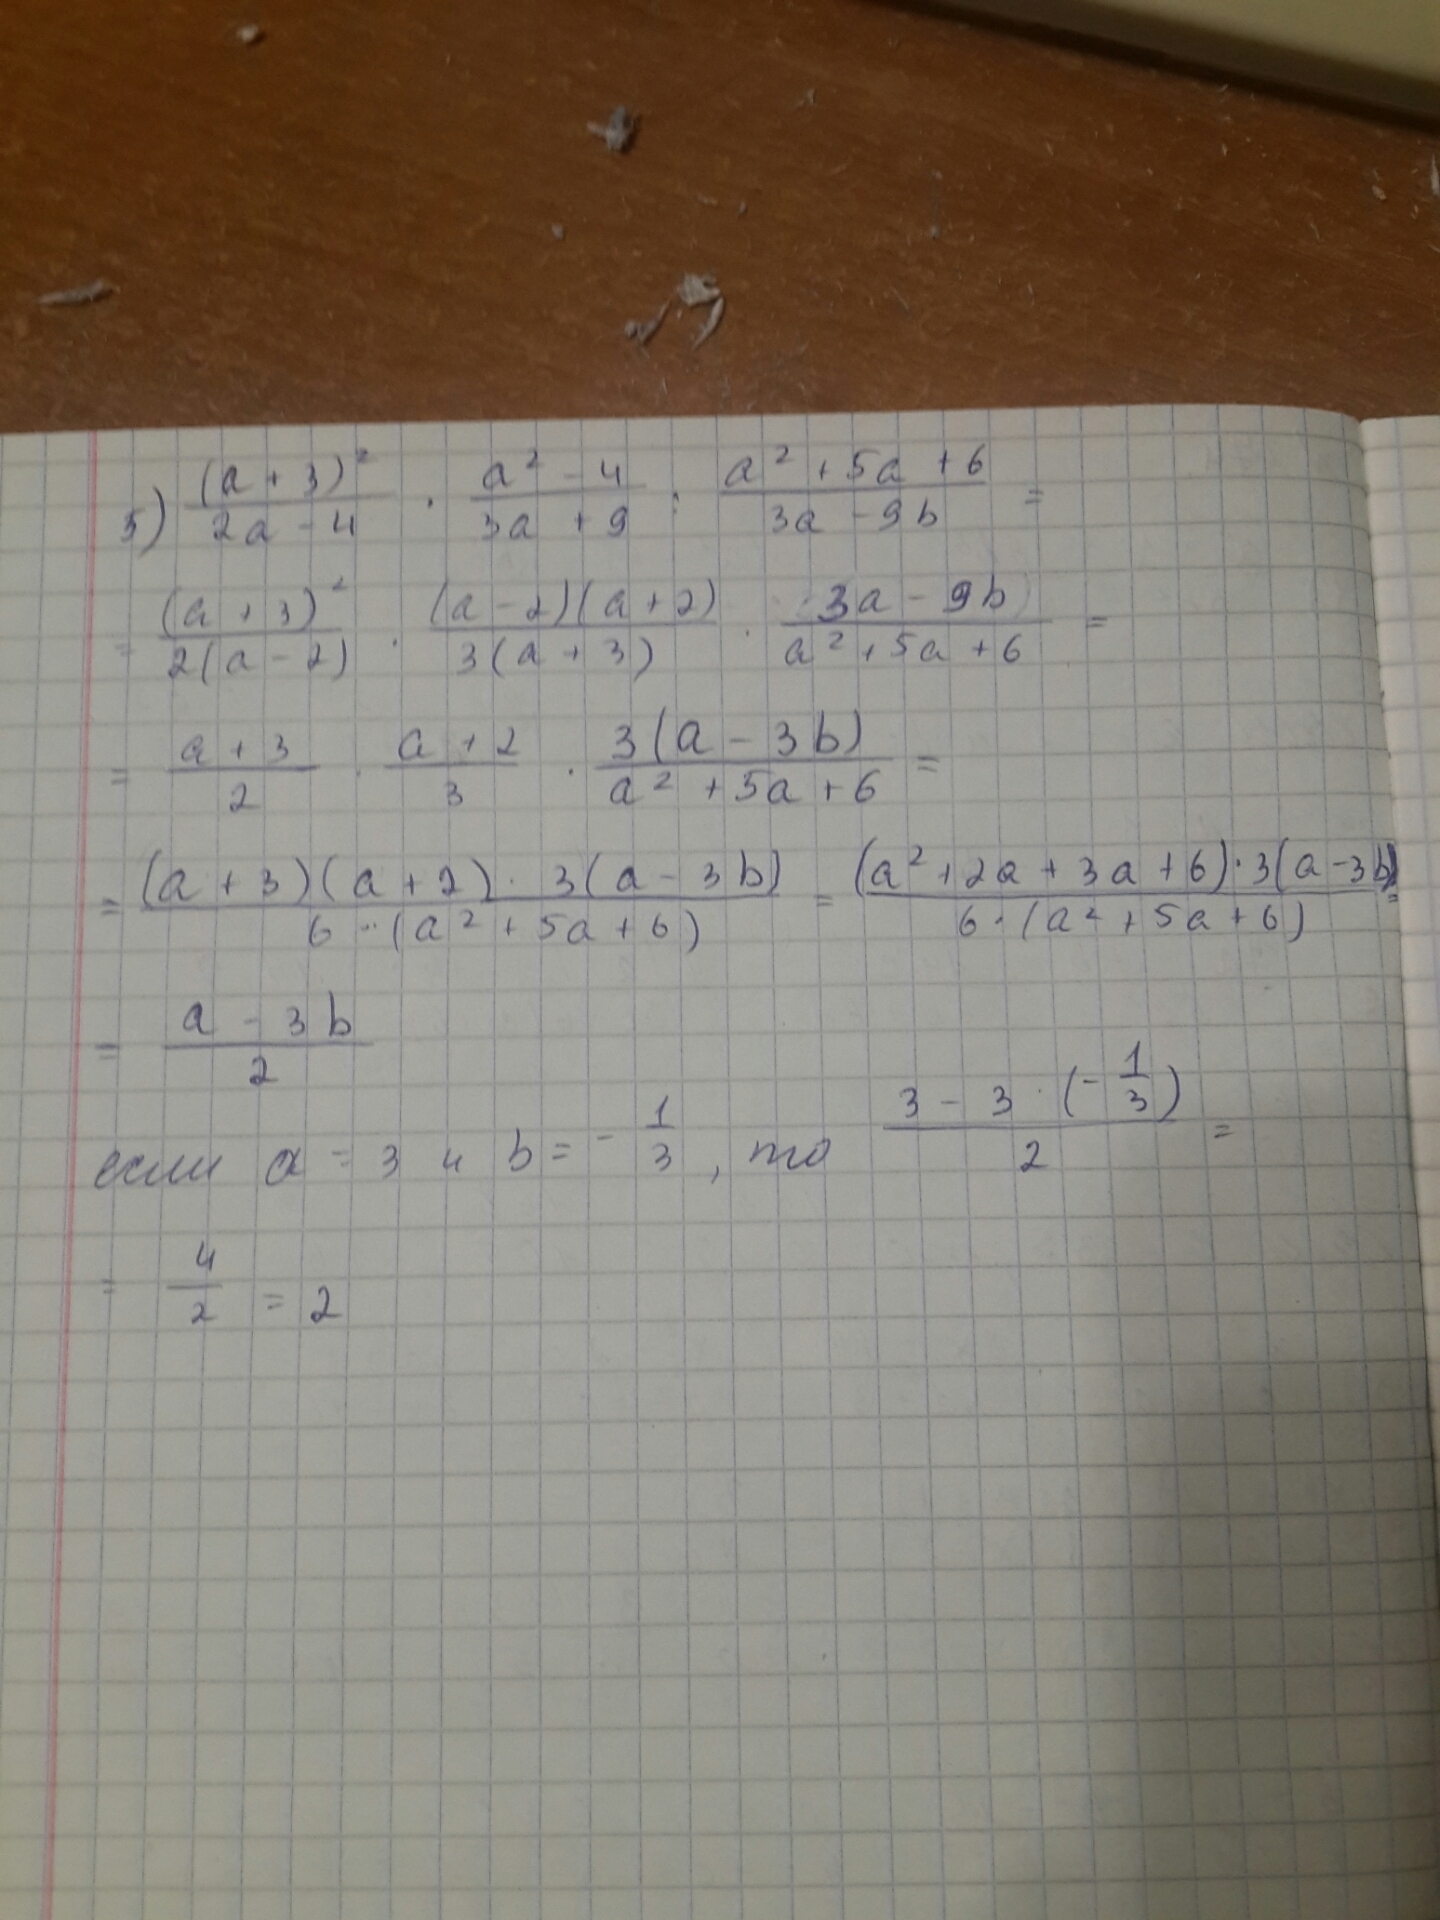 5) (a + 3)² / (2a - 4) · (a² - 4) / (3a + 9) : (a² + 5a + 6) / (3a - 9b) =
= (a + 3)² / 2(a - 2) · (a - 2)(a + 2) / 3(a + 3) · (3a - 9b) / (a² + 5a + 6) =
= (a + 3) / 2 · (a + 2) / 3 · 3(a - 3b) / (a² + 5a + 6) =
= (a + 3)(a + 2) · 3(a - 3b) / 6 · (a² + 5a + 6) = (a² + 2a + 3a + 6) · 3(a - 3b) / 6 · (a² + 5a + 6) =
= (a - 3b) / 2
если a = 3 и b = - 1/3, то (3 - 3 · (- 1/3)) / 2 =
= 4/2 = 2